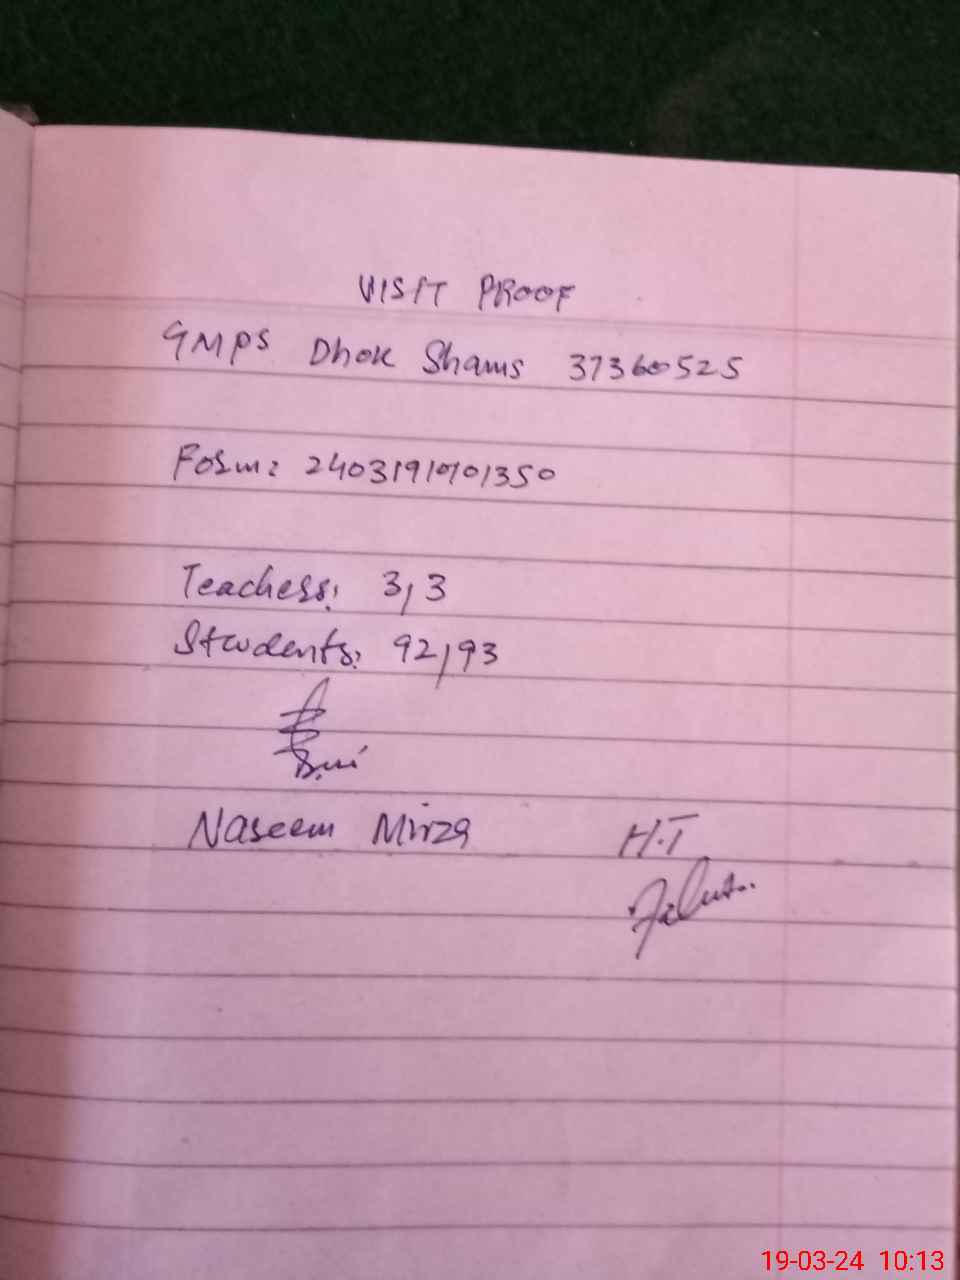 VISIT PROOF
GMPS Dhok Shams 37360525
Form: 24031910101350
Teachers: 3,3
Students: 92,93
Naseem Mirza
H.T
19-03-24 10:13